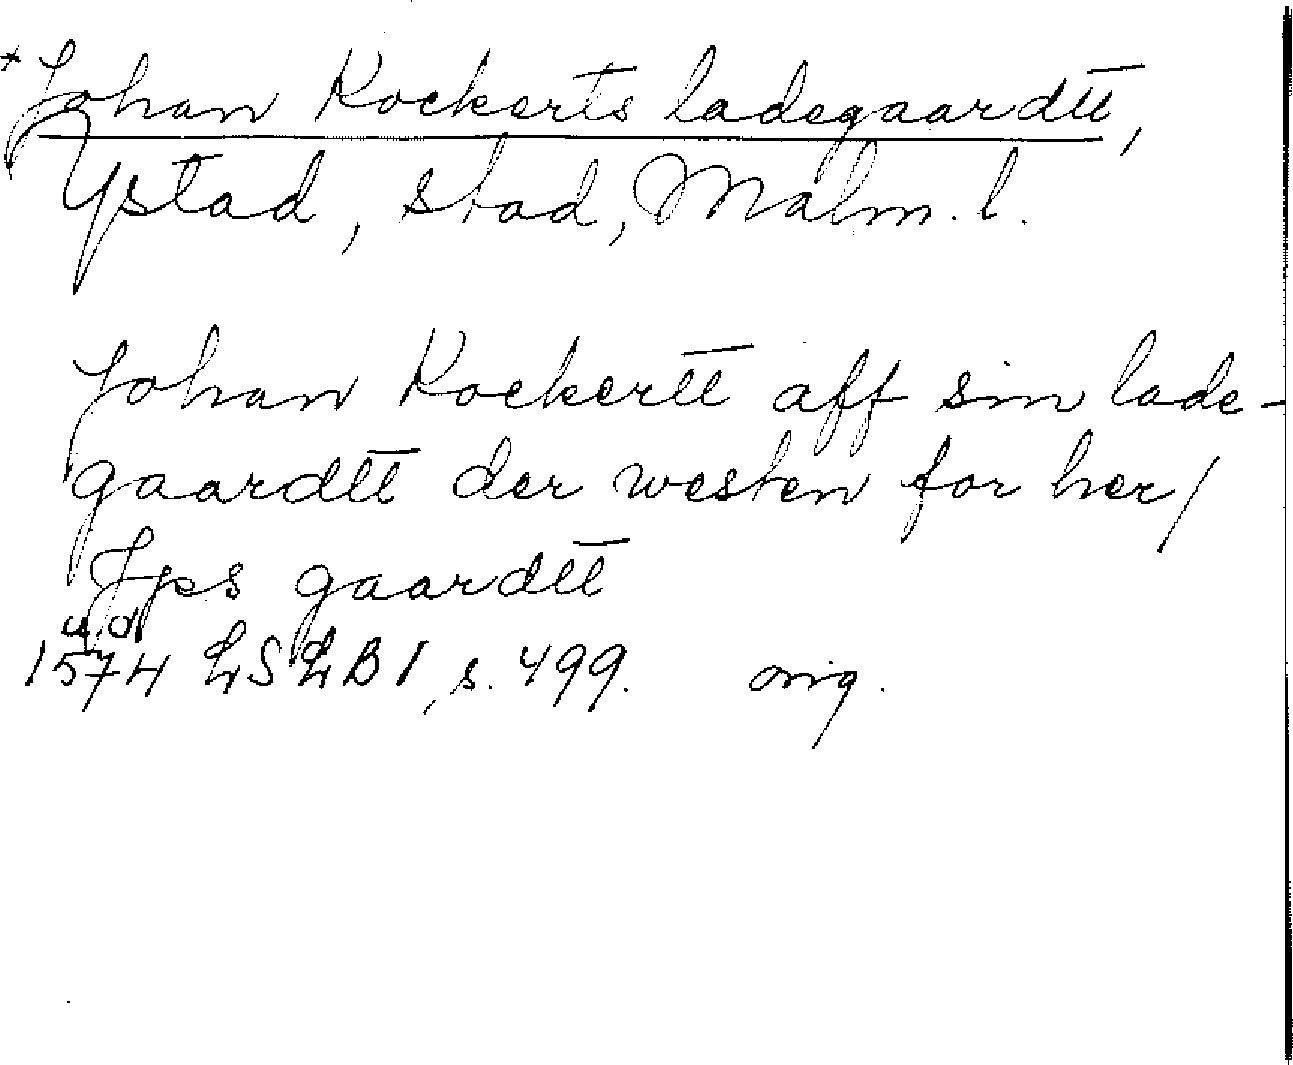 *Johan Kockerts ladegaardtt,
Ystad, stad, Malm. l.
Johan Kockertt aff sin lade-
gaardtt der westen for her/
Jps gaardtt
u.å.
1574 LSLB I, s. 499. orig.